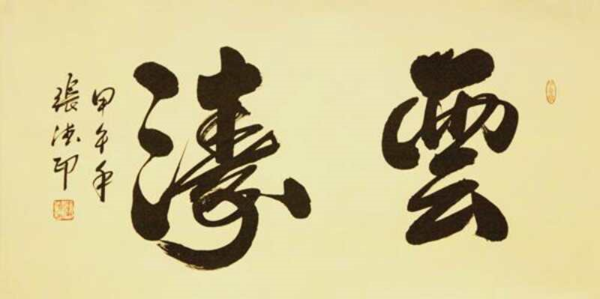 雲濤
甲午年
張德印